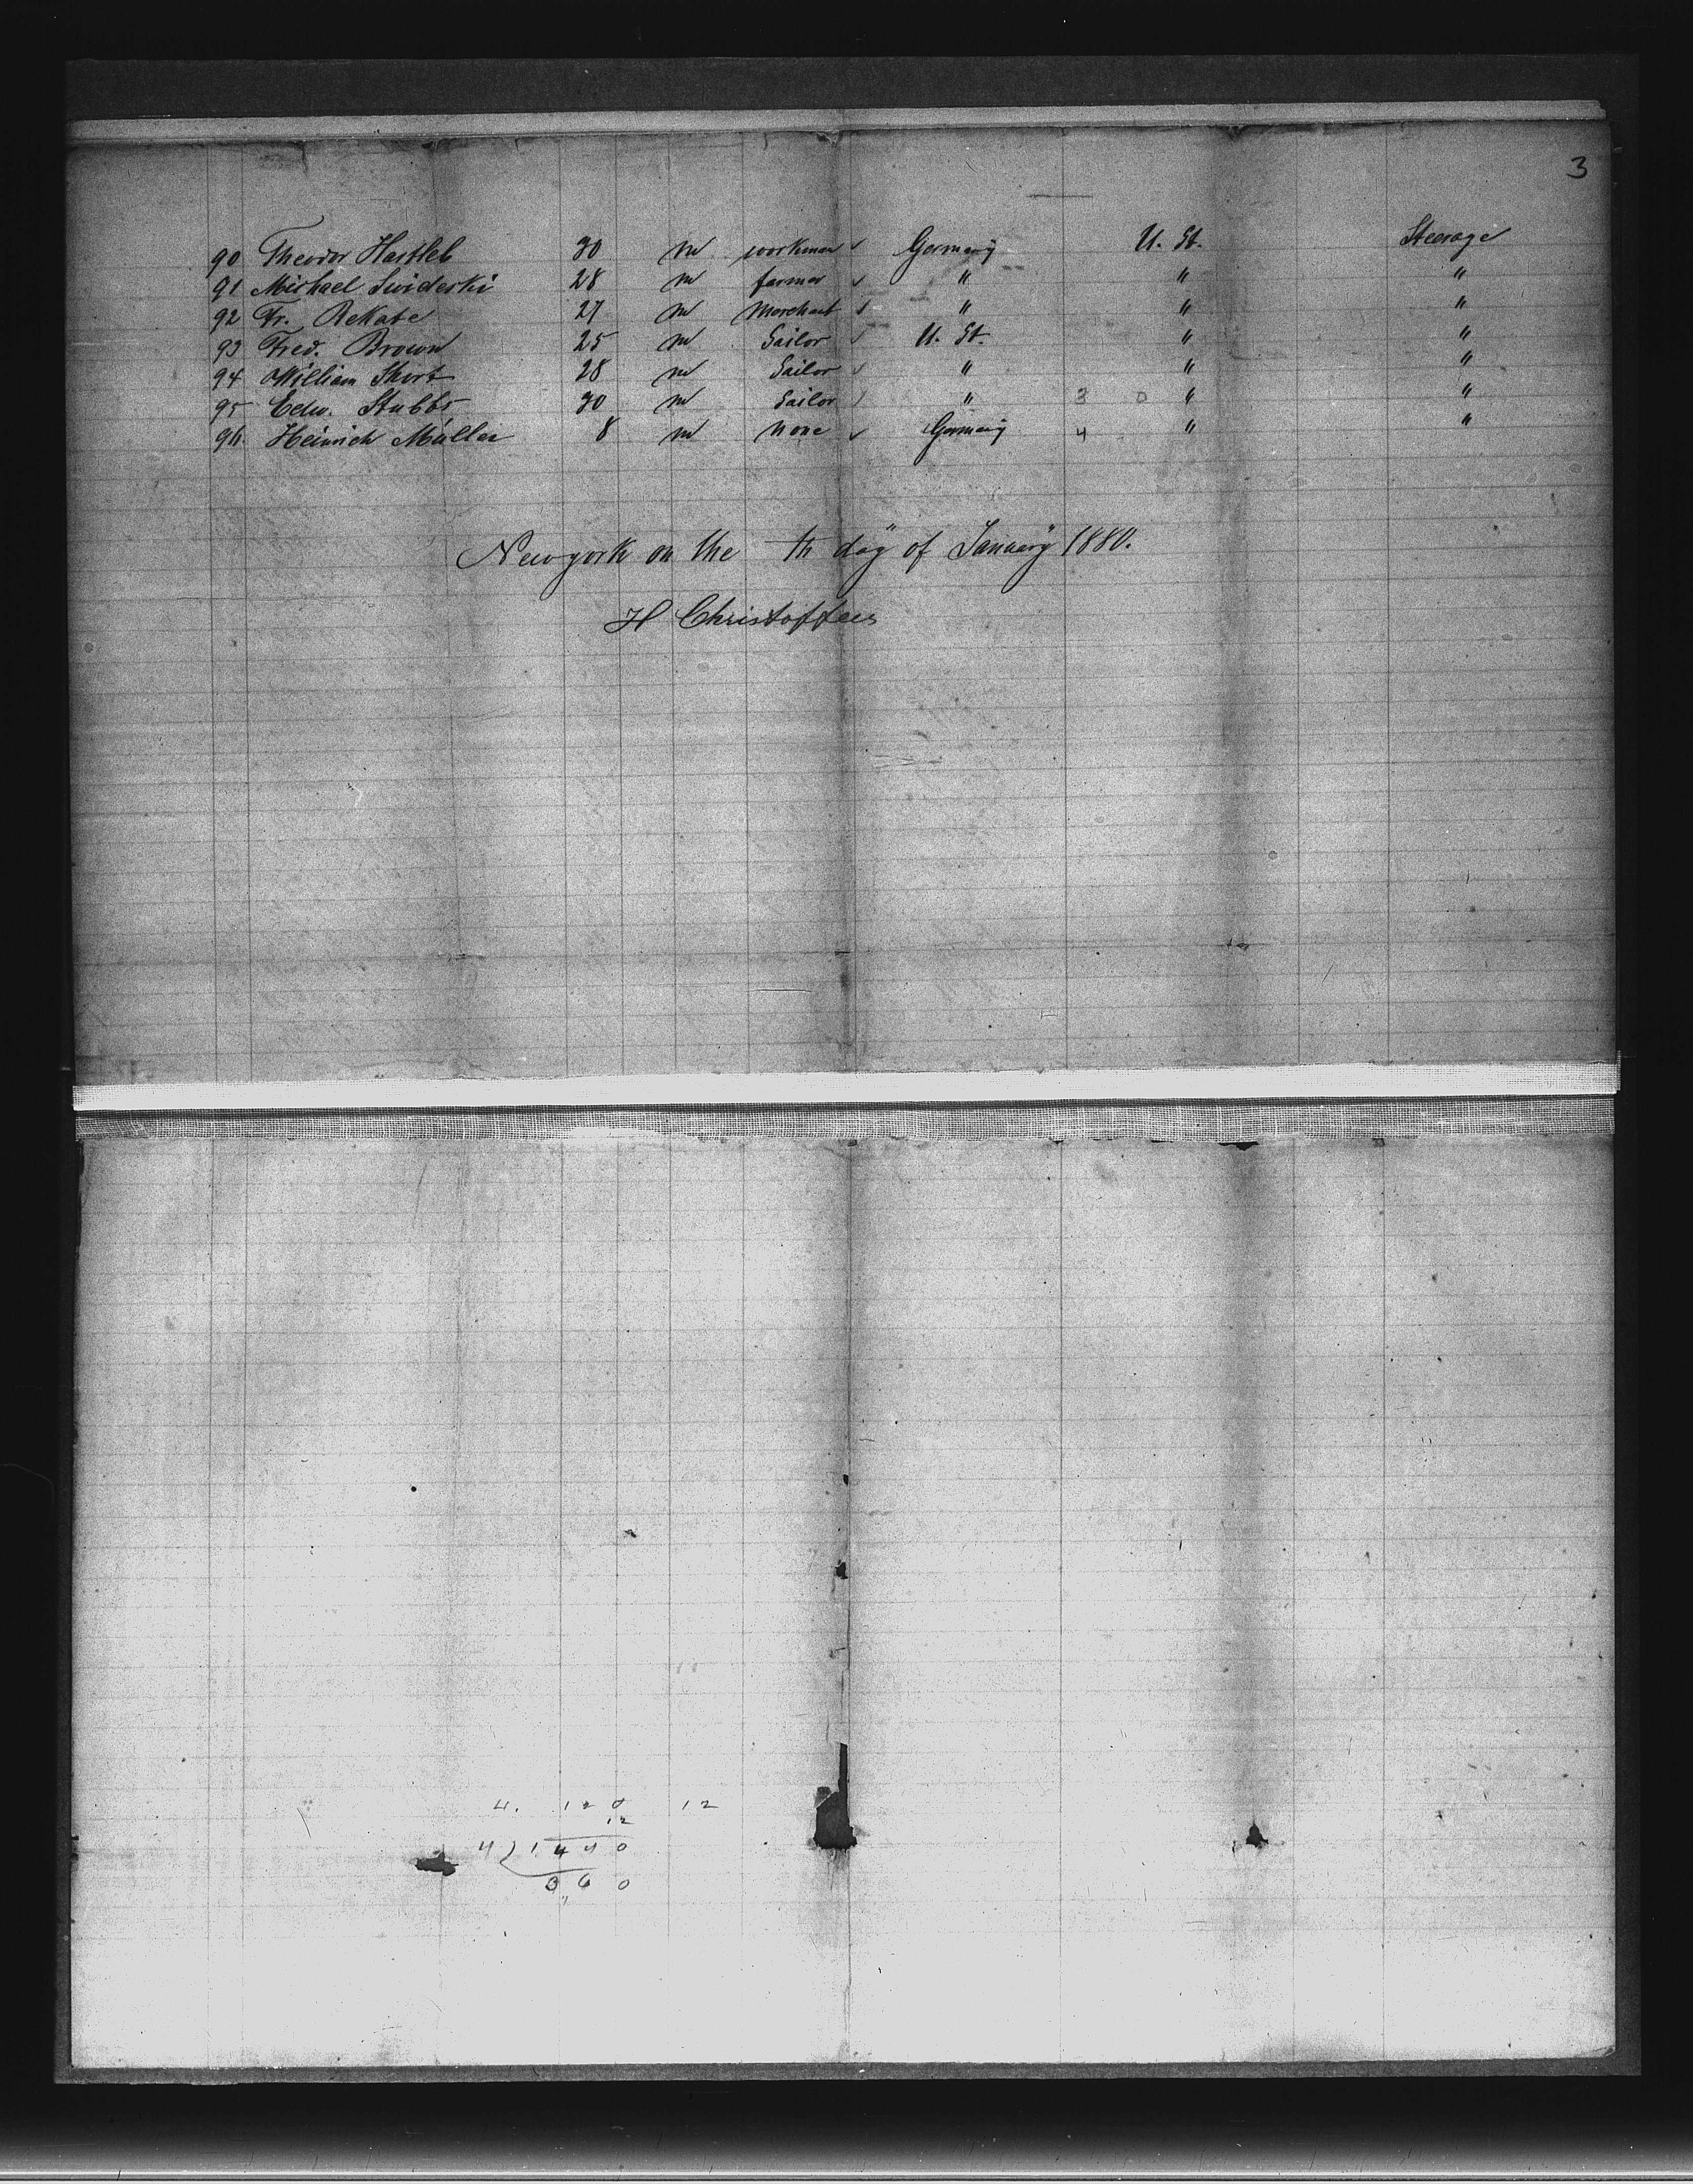 3
90 Theodor Hartleb 30 m workman ✓ Germany U. St. Steerage
91 Michael Swiderski 28 m farmer ✓ " " "
92 Fr. Rekate 27 m Merchant ✓ " " "
93 Fred. Brown 25 m Sailor ✓ U. St. " "
94 William Short 28 m Sailor ✓ " " "
95 Edw. Stubbs 30 m Sailor ✓ " 3 0 " "
96. Heinrich Müller 8 m none ✓ Germany 4 " "
Newyork on the th day of January 1880.
H Christoffers
4. 120 12
12
4 ) 1440
360